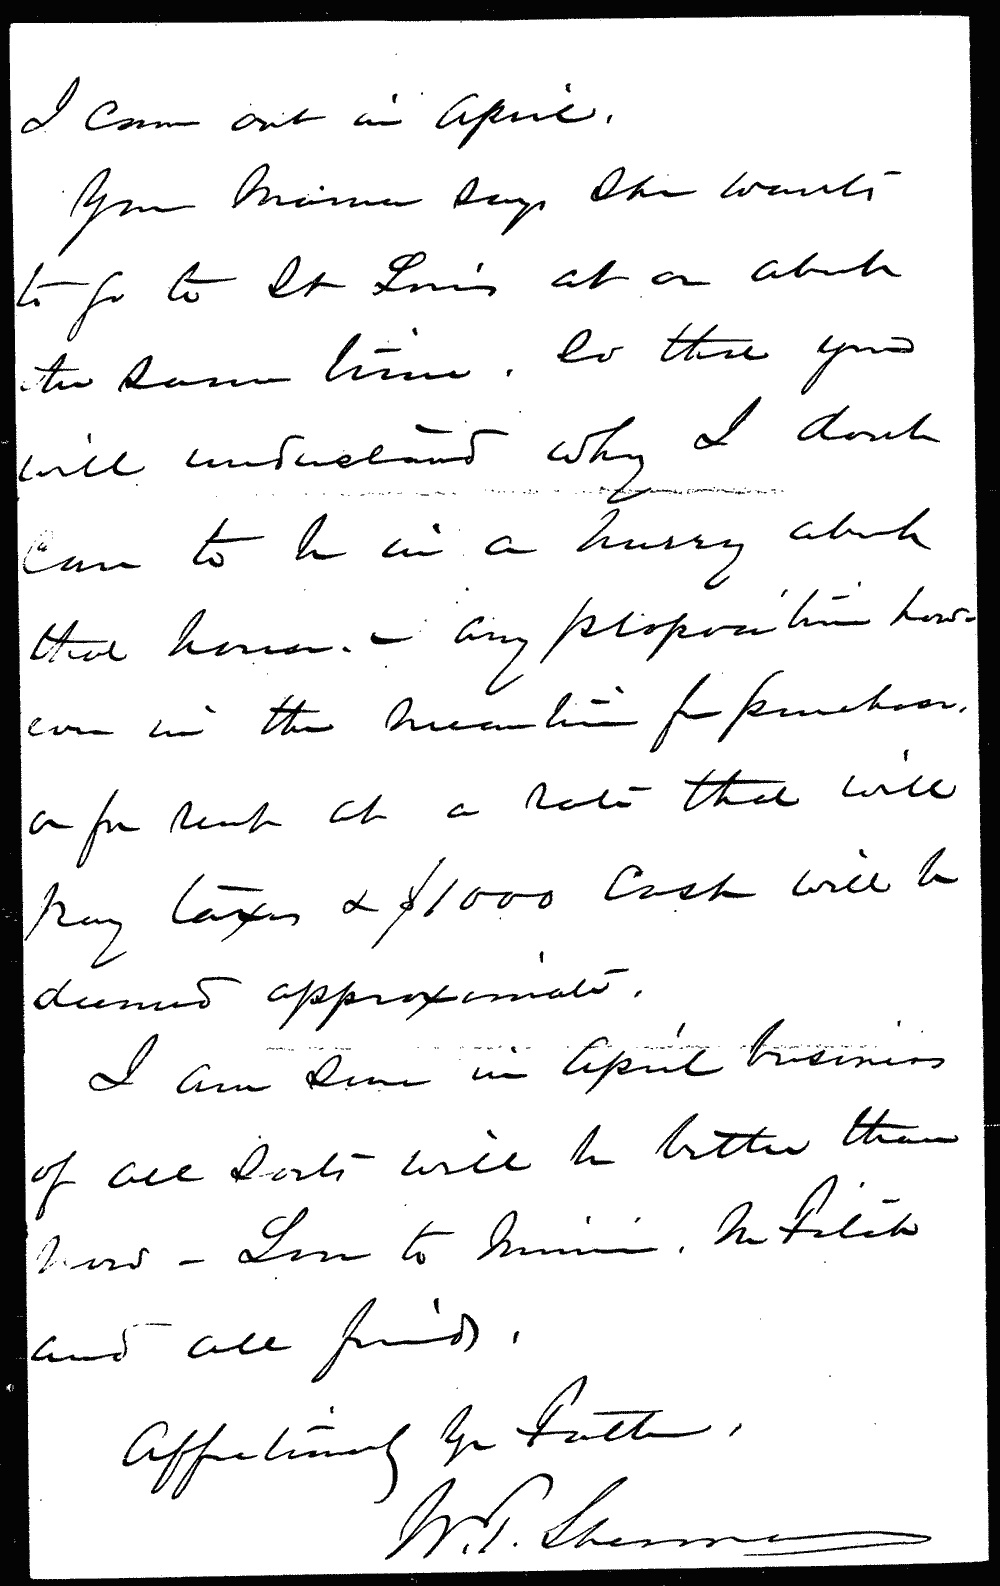 I come out in April.
Your Mama says she wants
to go to St Louis at or about
the same time. So there you
will understand why I dont
care to be in a hurry about
that house. - Any proposition how-
ever in the meantime for purchase,
or for rent at a rate that will
pay taxes & $1000 cash will be
deemed approximate.
I am sure in April business
of all sorts will be better than
now - Love to Minnie, Mr Fitch
and all friends.
Affectionately Yr Father,
W.T. Sherman